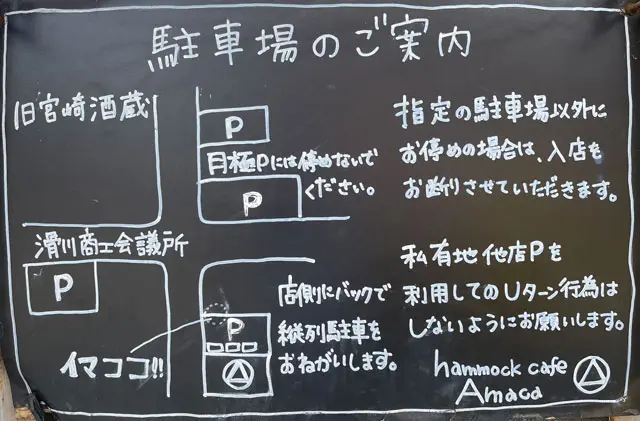 駐車場のご案内
旧宮崎酒蔵
P
月極Pには停めないで
ください。
P
指定の駐車場以外に
お停めの場合は、入店を
お断りさせていただきます。
滑川商工会議所
P
イマココ!!
P
店側にバックで
縦列駐車を
おねがいします。
私有地他店Pを
利用してのUターン行為は
しないようにお願いします。
hammock cafe
Amaca